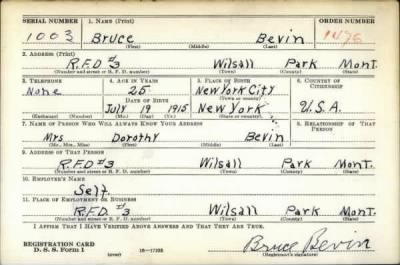 SERIAL NUMBER 1. NAME (Print) ORDER NUMBER
1003 Bruce Bevin
(First) (Middle) (Last)
2. ADDRESS (Print)
R.F.D #3 Wilsall Park Mont.
(Number and street or R. F. D. number) (Town) (County) (State)
3. TELEPHONE 4. AGE IN YEARS 5. PLACE OF BIRTH 6. COUNTRY OF CITIZENSHIP
None 25 New York City
DATE OF BIRTH (Town or county)
July 19 1915 New York U.S.A.
(Exchange) (Number) (Mo.) (Day) (Yr.) (State or country)
7. NAME OF PERSON WHO WILL ALWAYS KNOW YOUR ADDRESS 8. RELATIONSHIP OF THAT PERSON
Mrs Dorothy Bevin
(Mr., Mrs., Miss) (First) (Middle) (Last)
9. ADDRESS OF THAT PERSON
R.F.D #3 Wilsall Park Mont.
(Number and street or R. F. D. number) (Town) (County) (State)
10. EMPLOYER'S NAME
Self.
11. PLACE OF EMPLOYMENT OR BUSINESS
R.F.D. #3 Wilsall Park Mont.
(Number and street or R. F. D. number) (Town) (County) (State)
I AFFIRM THAT I HAVE VERIFIED ABOVE ANSWERS AND THAT THEY ARE TRUE.
REGISTRATION CARD
D. S. S. Form 1 (over) Bruce Bevin
(Registrant's signature)